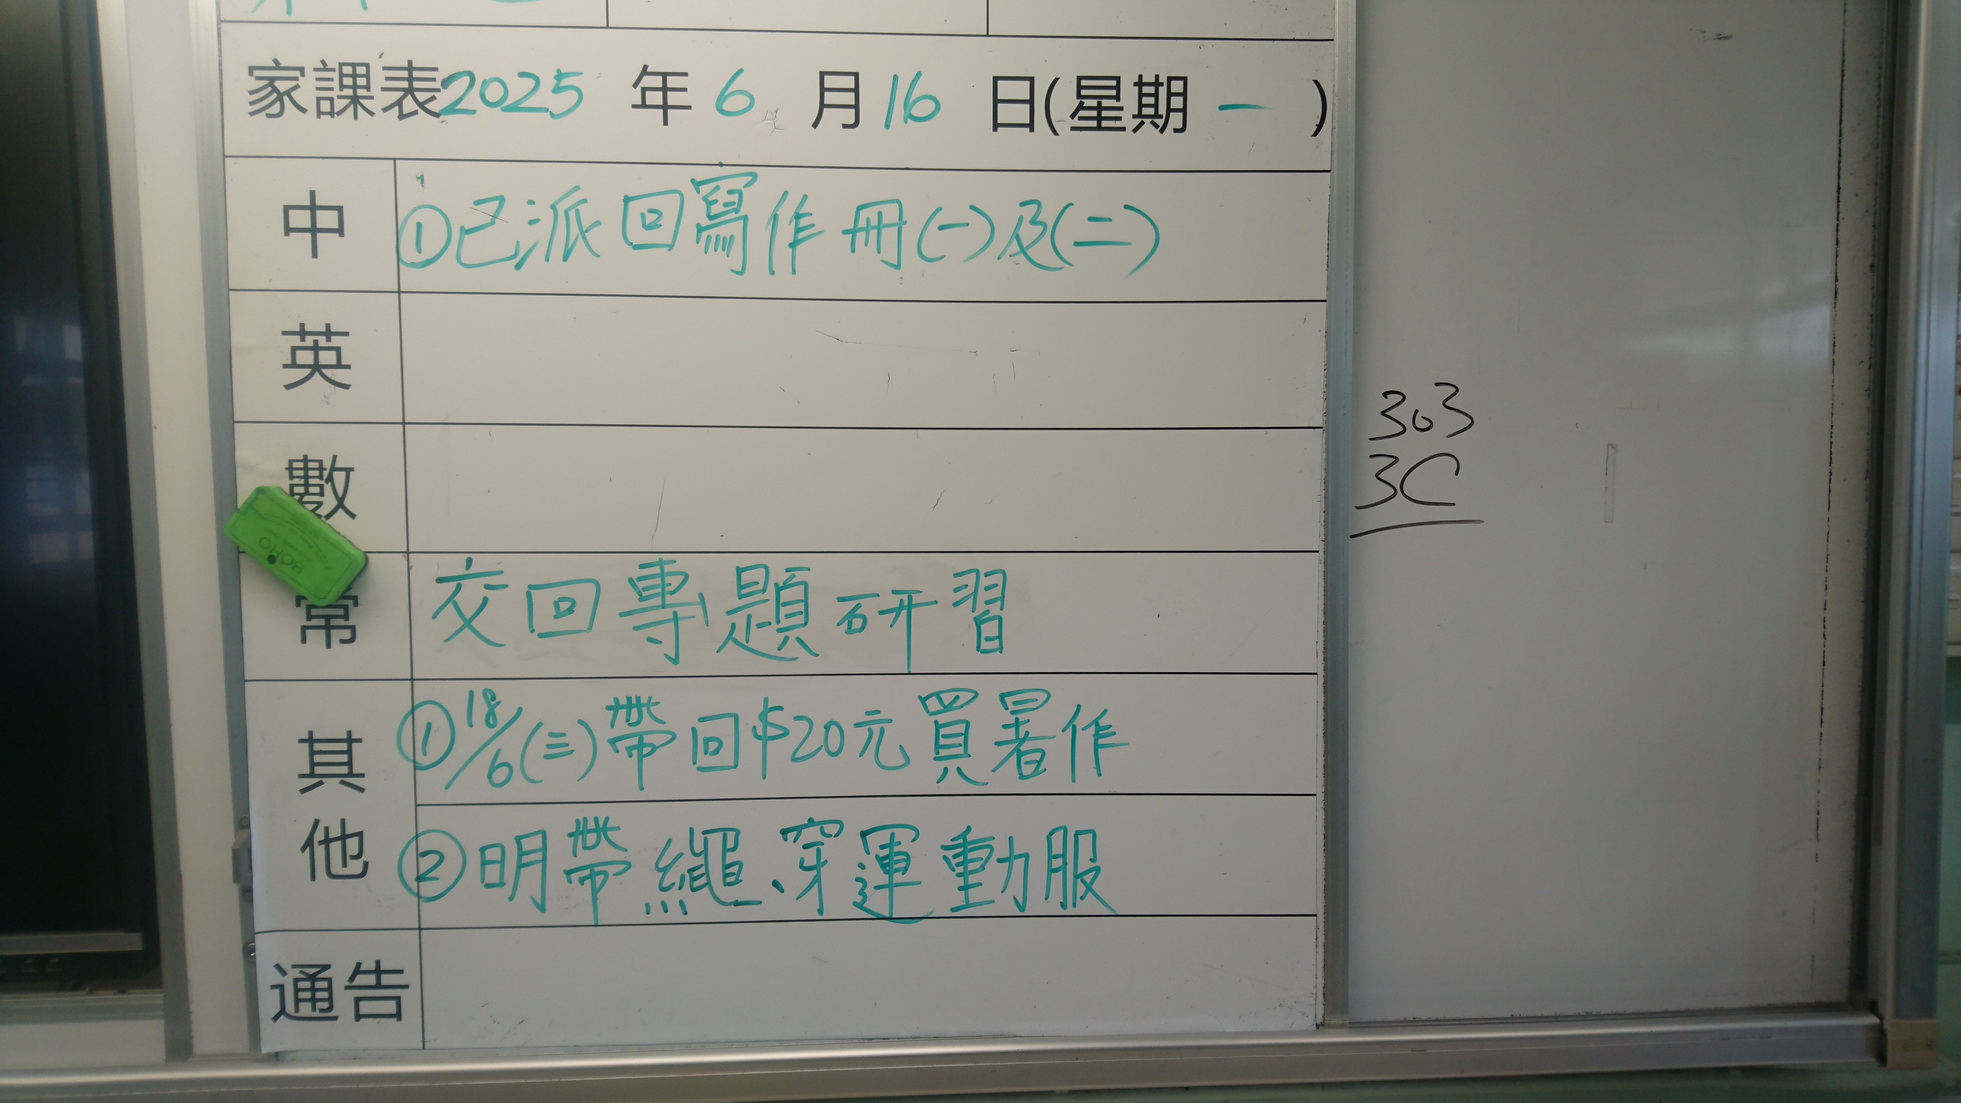 家課表2025 年 6 月 16 日(星期 一 )
中 ①已派回寫作冊(一)及(二)
英
數
常 交回專題研習
其他 ①18/6(三)帶回$20元買暑作
②明帶繩、穿運動服
通告
303
3C